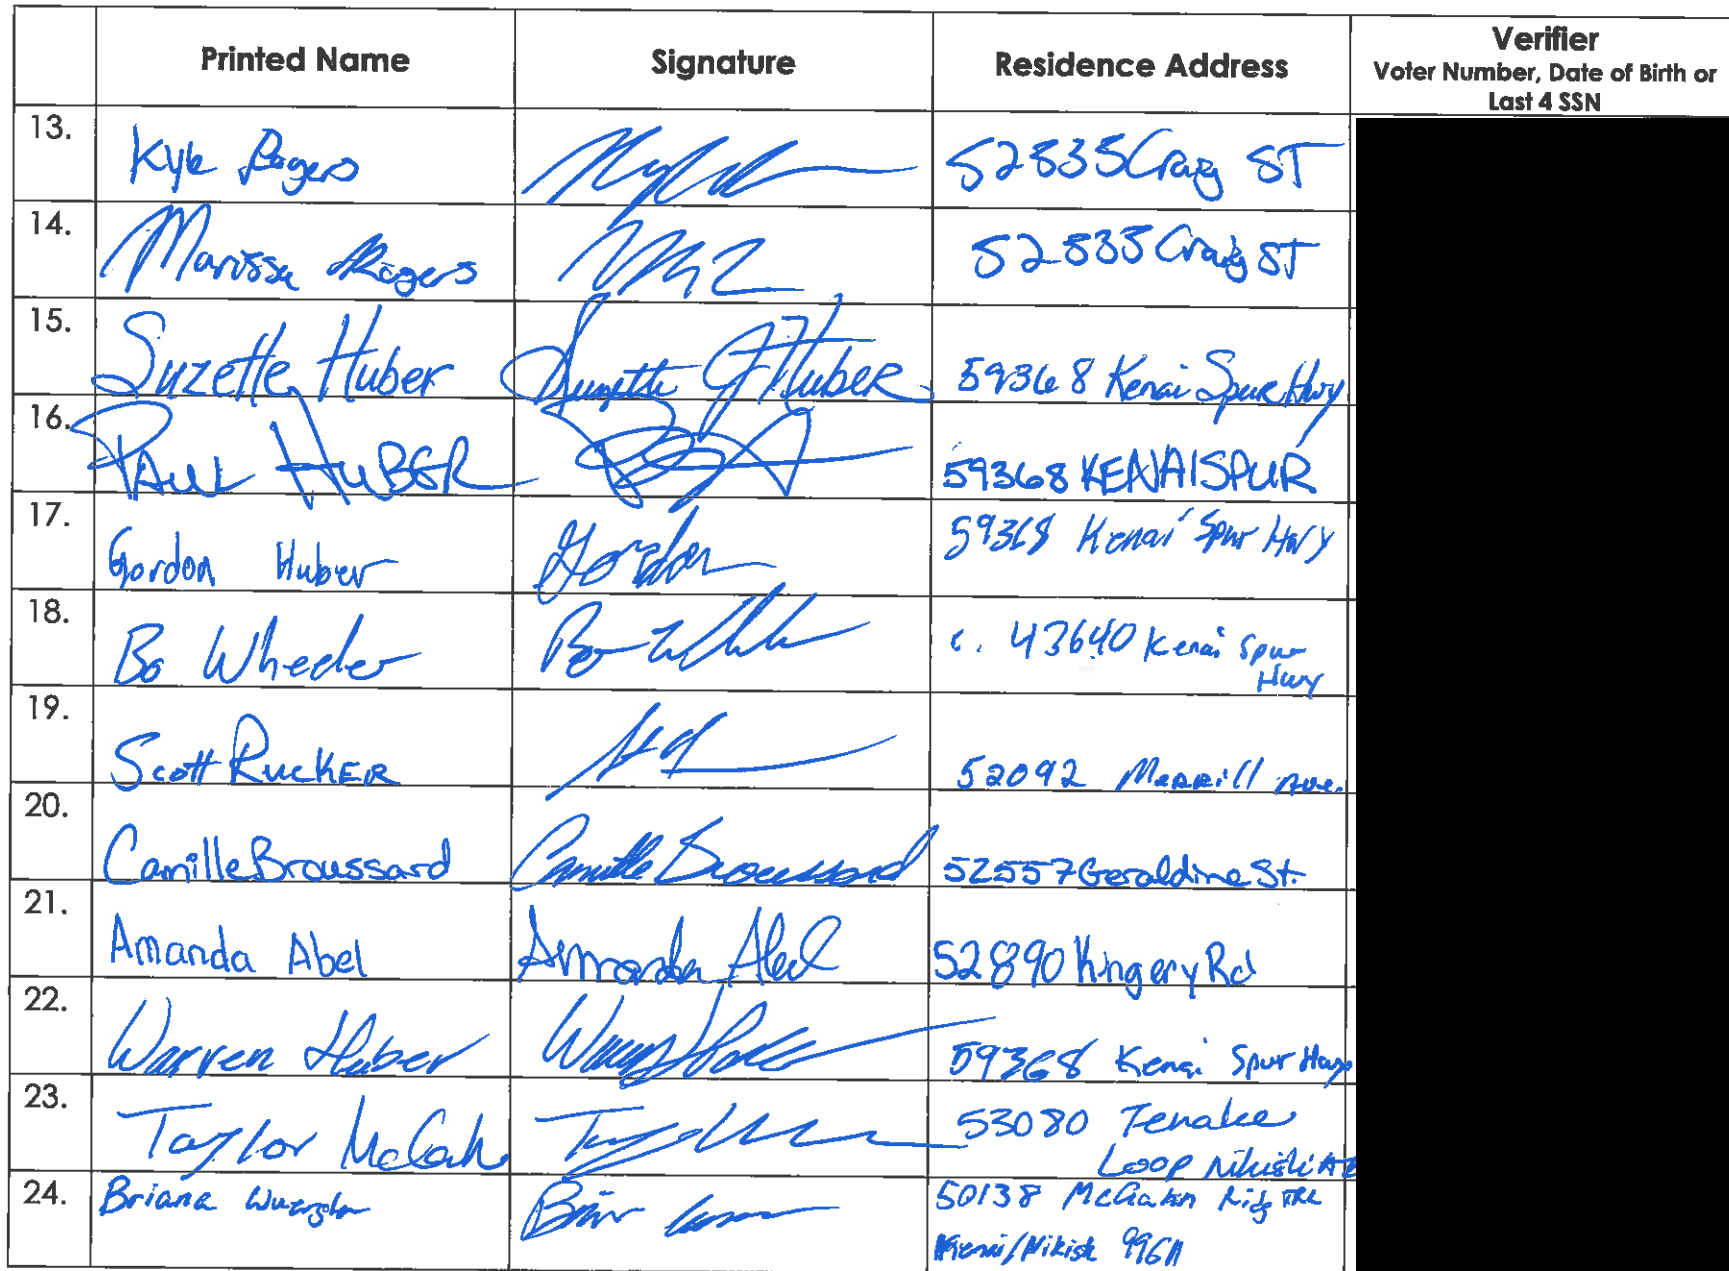 Printed Name Signature Residence Address Verifier
Voter Number, Date of Birth or
Last 4 SSN
13. Kyle Rogers 52835 Craig ST
14. Marissa Rogers 52835 Craig ST
15. Suzette Huber Suzette J Huber 59368 Kenai Spur Hwy
16. PAUL HUBER 59368 KENAI SPUR
17. Gordon Huber Gordon 59368 Kenai Spur Hwy
18. Bo Wheeler Bo 43640 Kenai Spur
Hwy
19. Scott RUCKER 52092 Merrill Ave.
20. Camille Broussard Camille Broussard 52557 Geraldine St.
21. Amanda Abel Amanda Abel 52890 Kingery Rd
22. Warren Huber 59368 Kenai Spur Hwy
23. Taylor 53080 Tenakee
Loop Nikiski AK
24. Briana 50138 McGahan
Kenai/Nikiski 99611